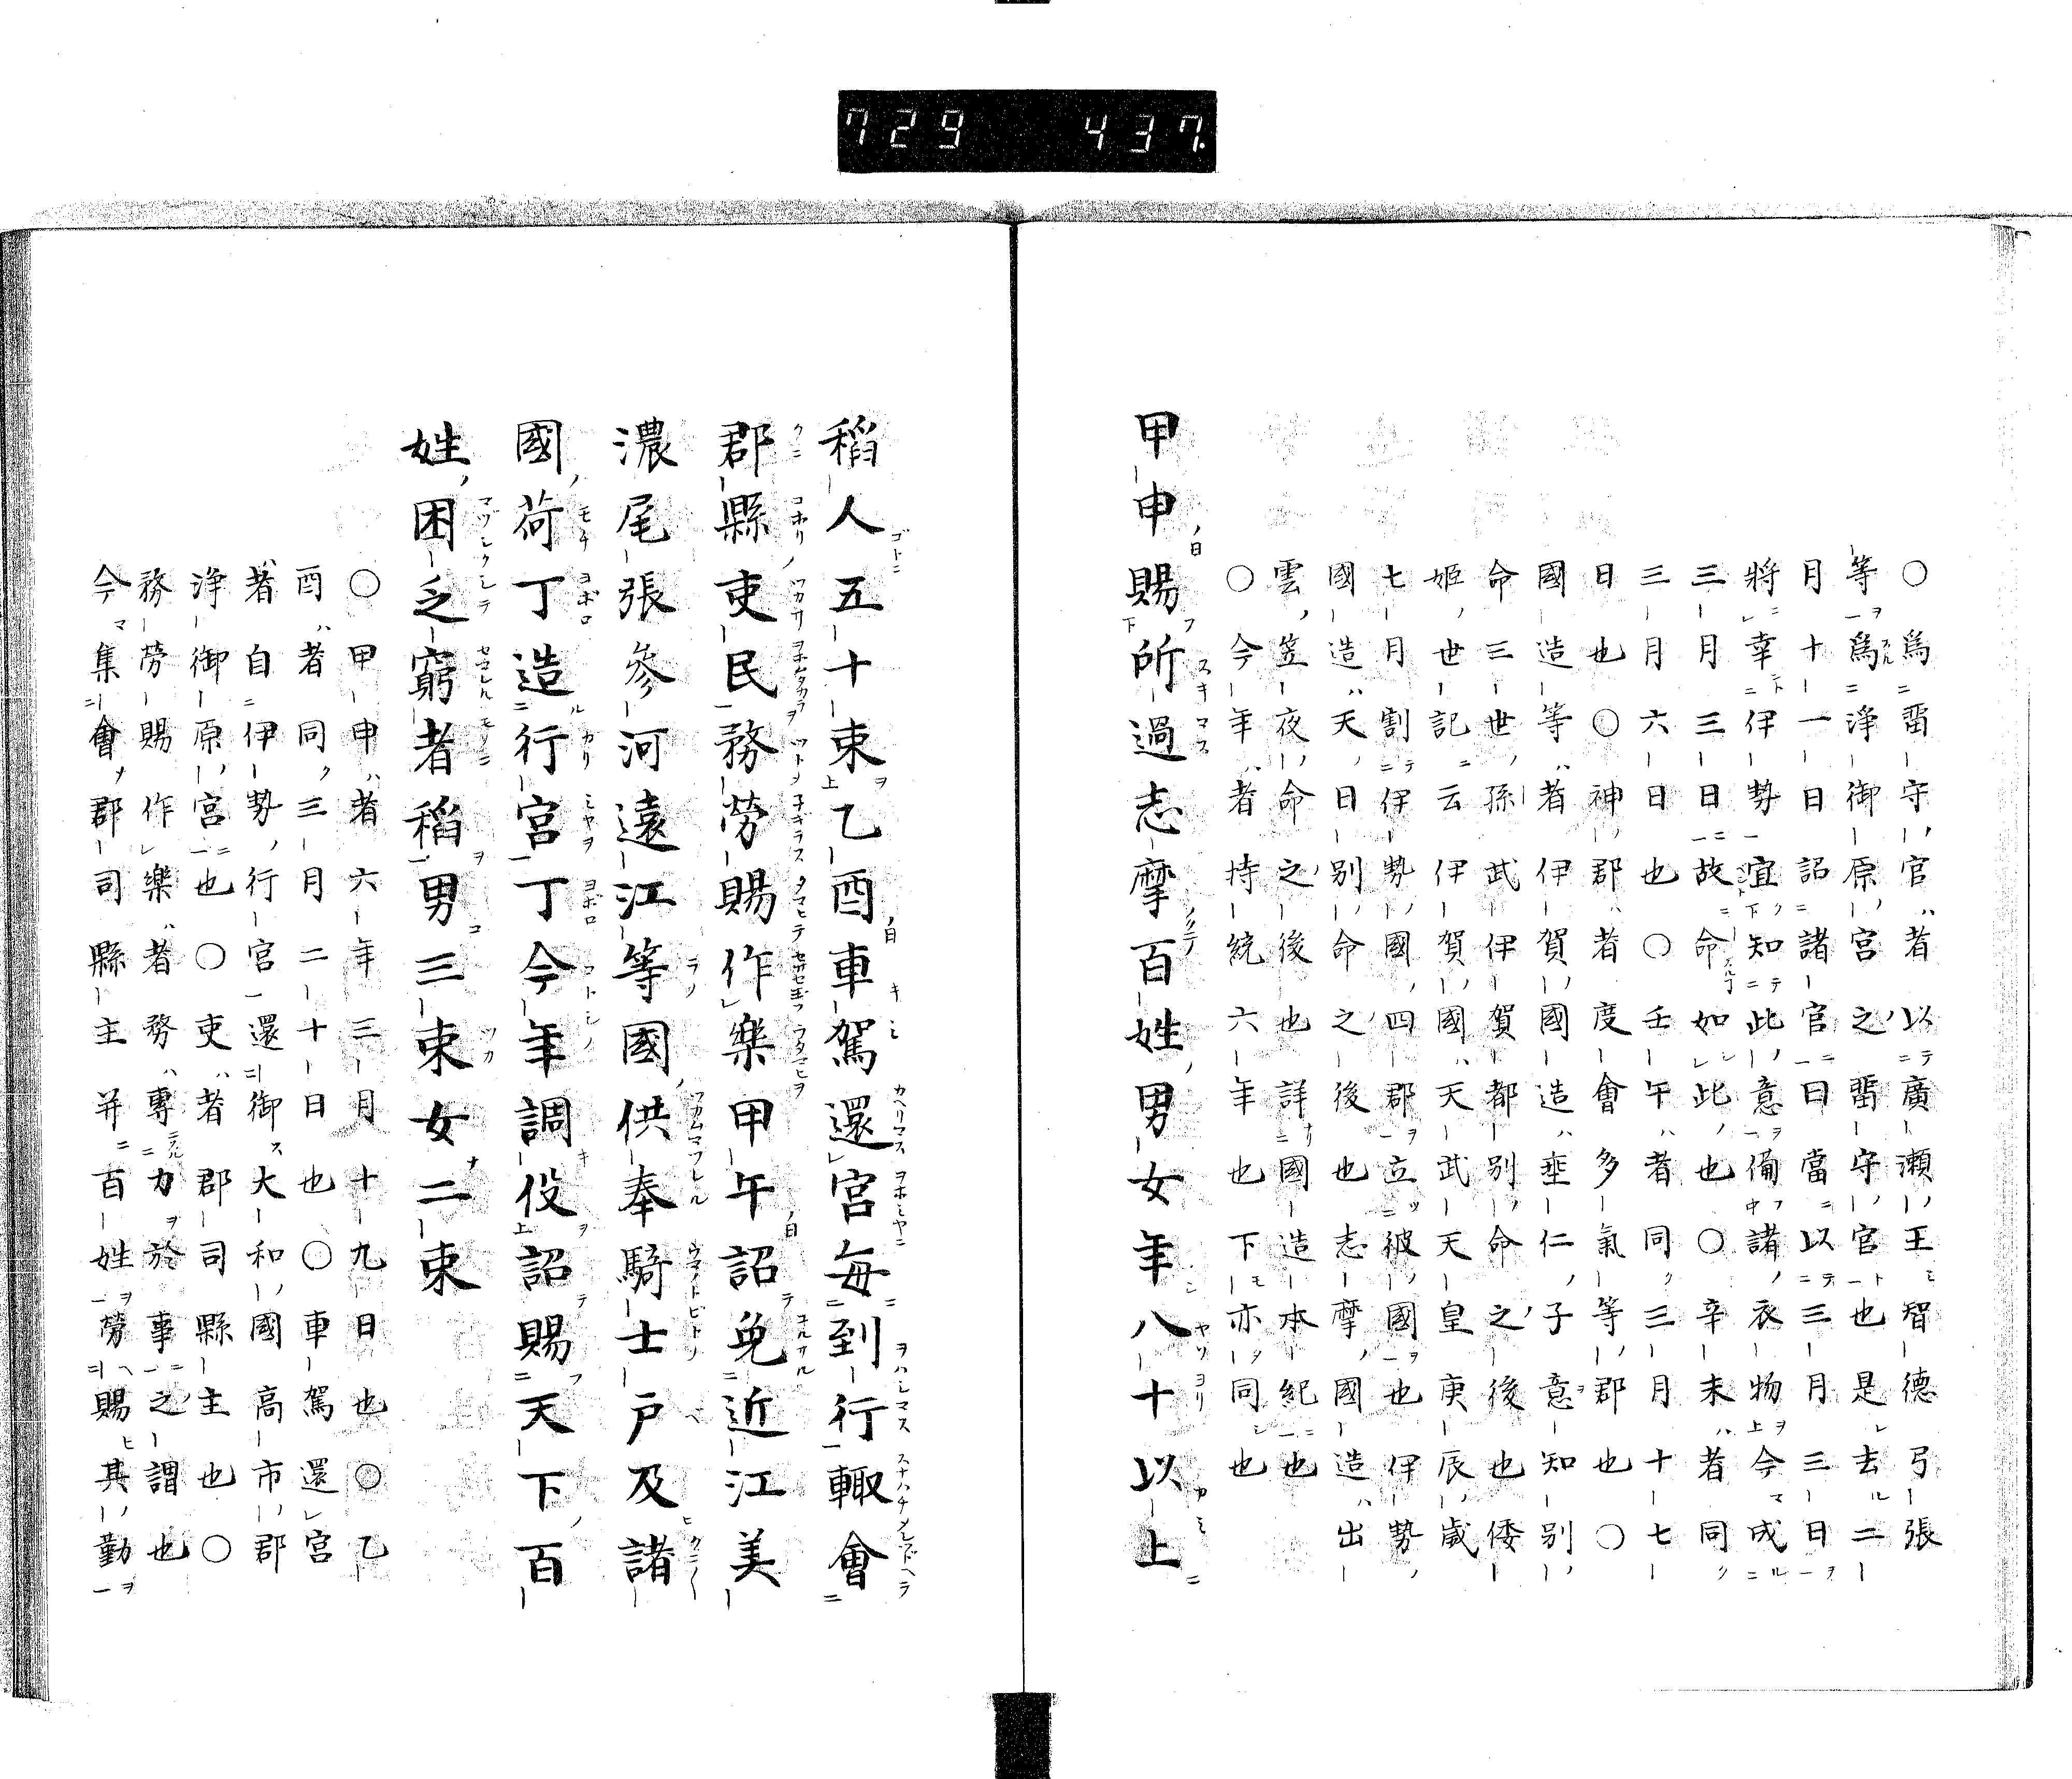 729 437
○為畱守官者以廣瀬王智德弓張
等為浄御原宮之畱守官也是去二
月十一日詔諸官曰當以三月三日
將幸伊勢宜知此意備諸衣物今成
三月三日故命如此也○辛未者同
三月六日也○壬午者同三月十七
日也○神郡者度會多氣等郡也○
國造等者伊賀國造垂仁子意知別
命三世孫武伊賀都別命之後也倭
姬世記云伊賀國天武天皇庚辰歲
七月割伊勢國四郡立彼國也伊勢
國造天日別命之後也志摩國造出
雲笠夜命之後也詳國造本紀也
○今年者持統六年也下亦同也
甲申賜所過志摩百姓男女年八十以上
稻人五十束乙酉車駕還宮每到行輙會
郡縣吏民務勞賜作樂甲午詔免近江美
濃尾張參河遠江等國供奉騎士戸及諸
國荷丁造行宮丁今年調役詔賜天下百
姓困乏窮者稻男三束女二束
○甲申者六年三月十九日也○乙
酉者同三月二十日也○車駕還宮
者自伊勢行宮還御大和國高市郡
浄御原宮也○吏者郡司縣主也○
務勞賜作樂者務專力於事之謂也
今集會郡司縣主并百姓勞賜其勤